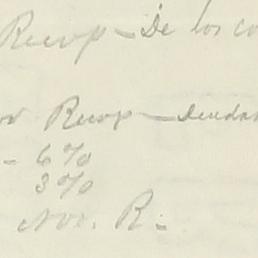 Recop - De los co
or Recop - deudas
- 6%
3%
Nov. R.